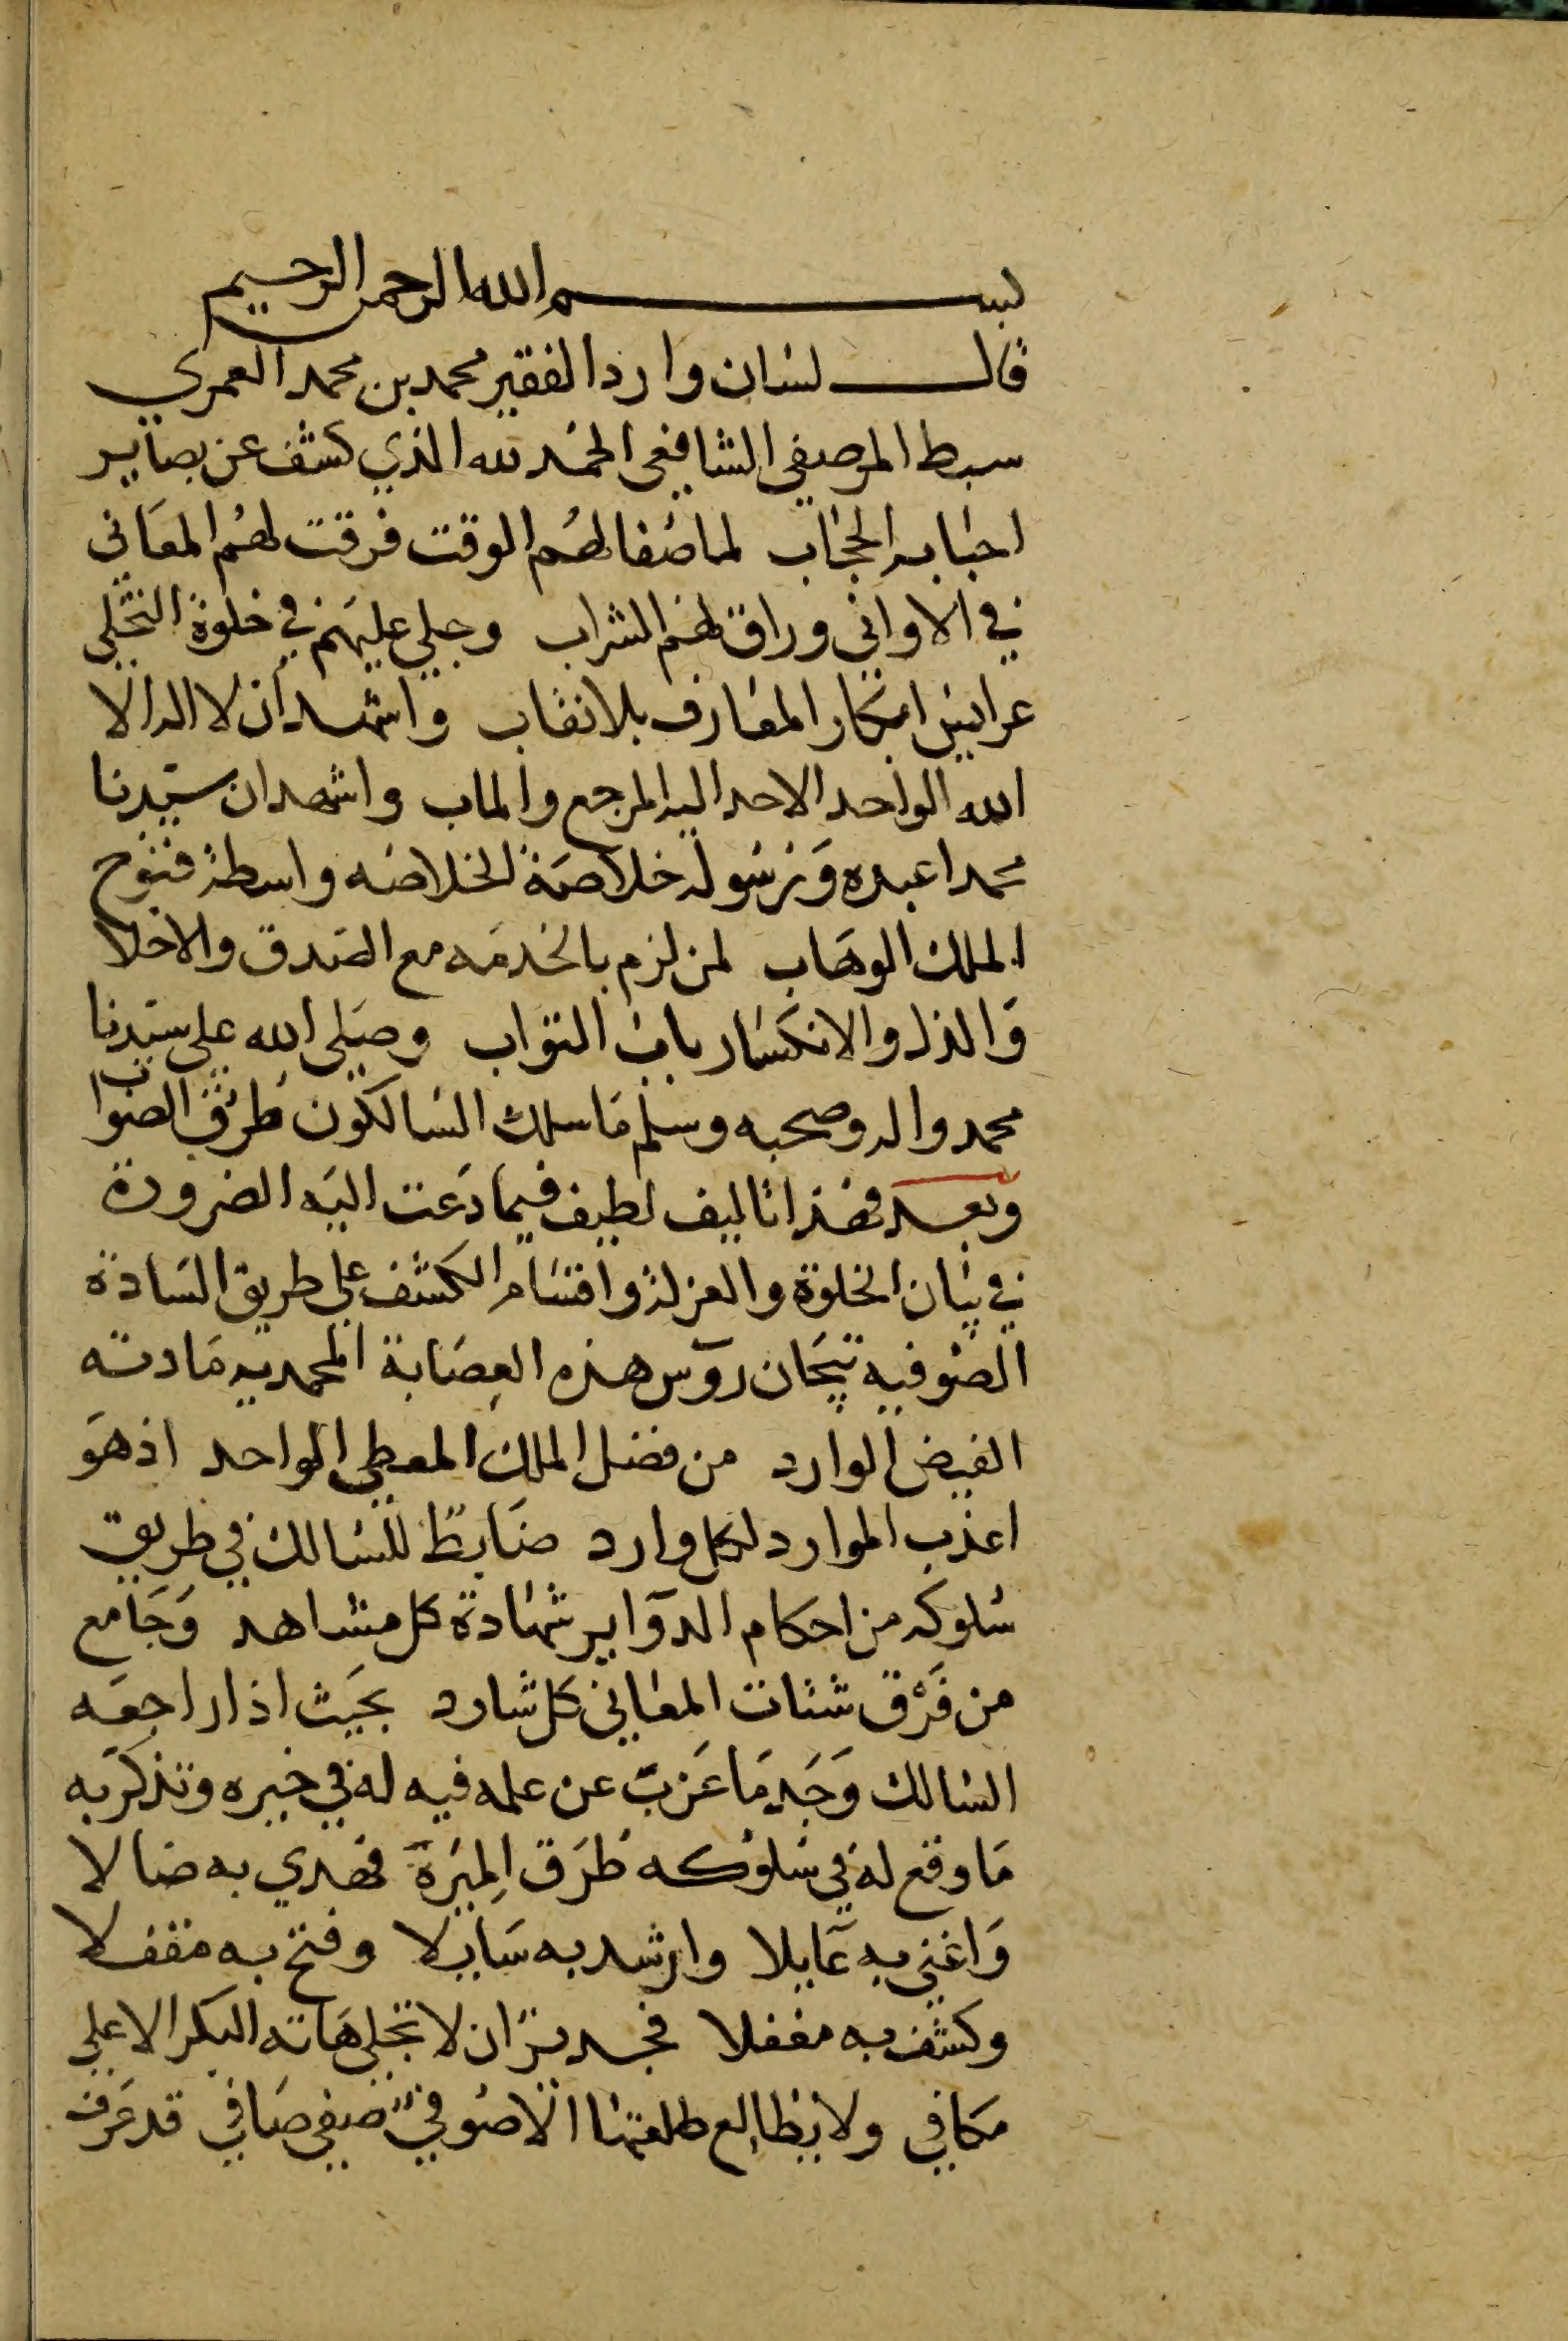 بسم الله الرحمن الرحيم
قال لسان وارد الفقير محمد بن محمد العمري
سبط المرصفي الشافعي الحمد لله الذي كشف عن بصاير
احبابه الحجاب لما صفا لهم الوقت فرقت لهم المعاني
في الاواني وراق لهم الشراب وجلي عليهم في خلوة التجلي
عرايس ابكار المعارف بلا نقاب واشهد ان لا اله الا
الله الواحد الاحد اليه المرجع والماب واشهد ان سيدنا
محمدا عبده ورسوله خلاصة الخلاصه واسطة فتوح
الملك الوهاب لمن لزم بالخدمه مع الصدق والاخلا
والذل والانكسار باب التواب وصلى الله علي سيدنا
محمد واله وصحبه وسلم ما سلك السالكون طرق الصواب
وبعد فهذا تاليف لطيف فيما دعت اليه الضرورة
في بيان الخلوة والعزلة واقسام الكشف علي طريق السادة
الصوفيه تيجان روس هذه العصابة المحمديه مادته
الفيض الوارد من فضل الملك المعطي الواحد اذ هو
اعذب الموارد لكل وارد ضابط للسالك في طريق
سلوكه من احكام الدواير شهادة كل مشاهد وجامع
من فرق شتات المعاني كل شارد بحيث اذا راجعه
السالك وجد ما عزب عن علمه فيه له في خبره وتذكر به
ما وقع له في سلوكه طرق الميرة فهدي به ضالا
واغني به عايلا وارشد به سايلا وفتح به مقفلا
وكشف به مغفلا فجدير ان لا تجلي هاته البكر الا علي
مكافي ولا يطالع طلعتها الا صوفي صفي صافي قد عرف